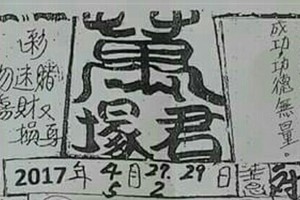 成功功德無量。
萬君塚
賭又尊
彩迷財損
勿
2017年 4月27.29日
5 2